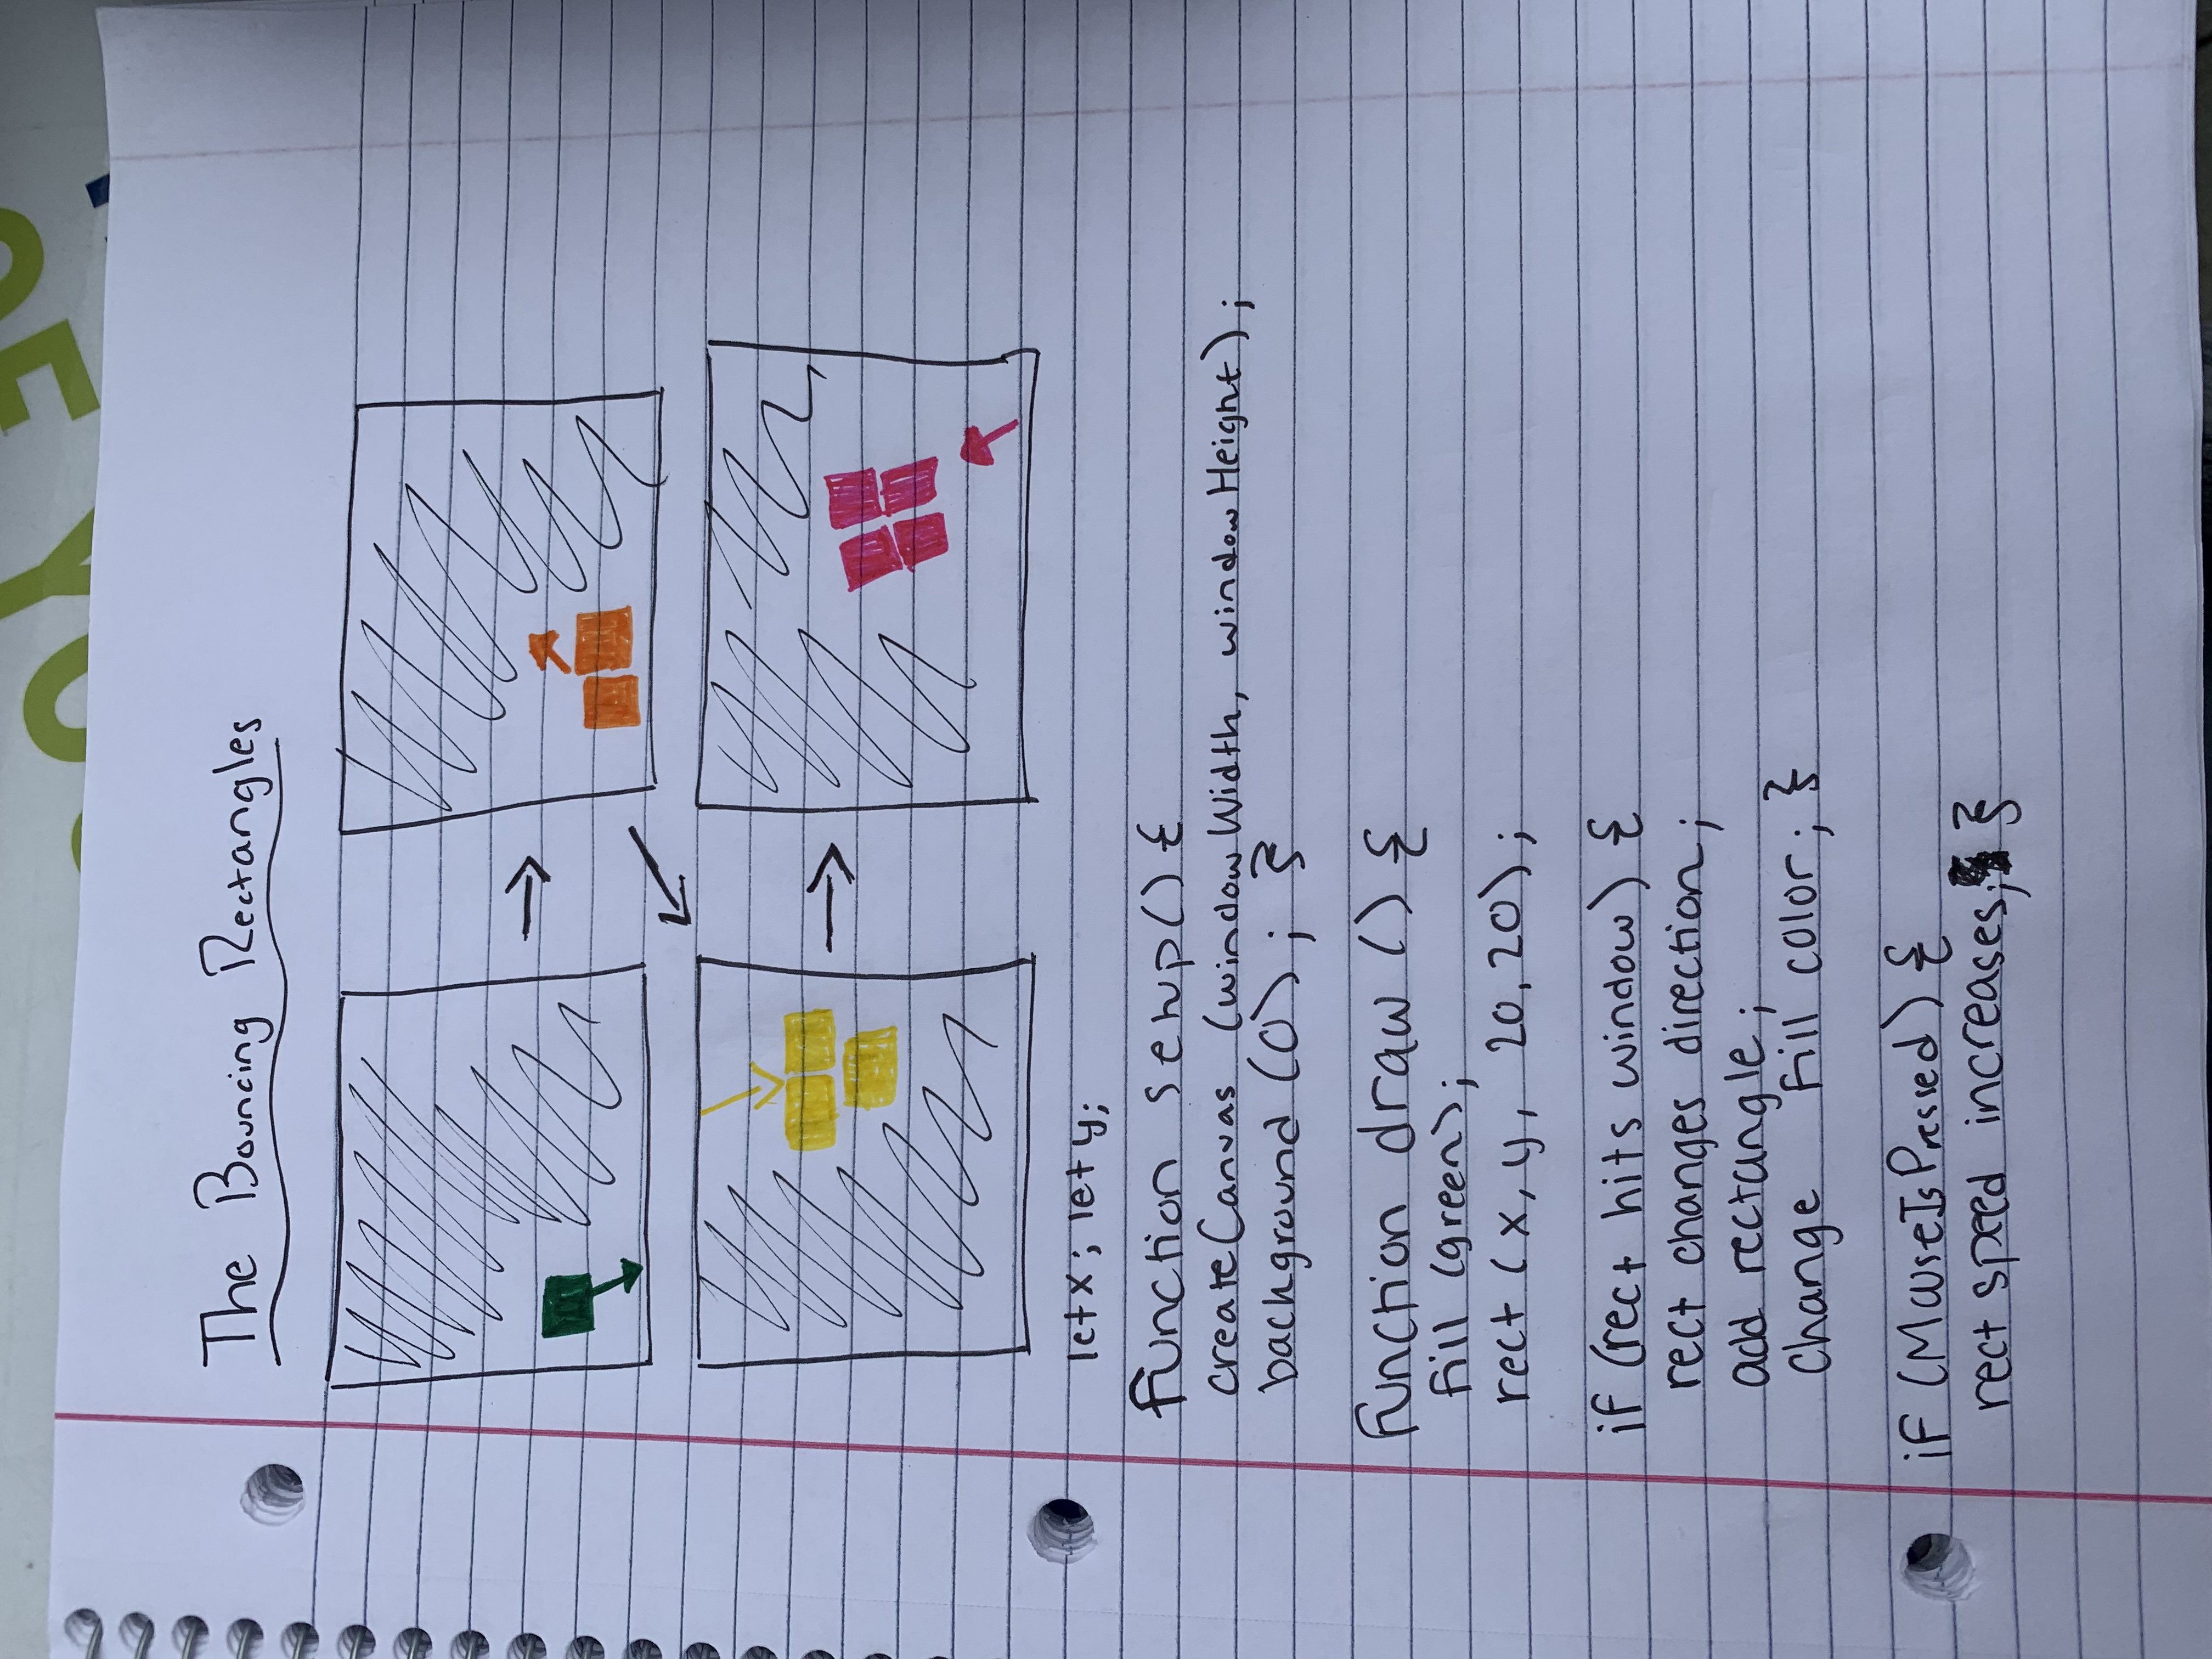 The Bouncing Rectangles
let x; let y;
function setup() {
createCanvas (windowWidth, windowHeight);
background (0); }
function draw () {
fill (green);
rect (x, y, 20, 20);
if (rect hits window) {
rect changes direction;
add rectangle;
change fill color; }
if (MouseIsPressed) {
rect speed increases; }